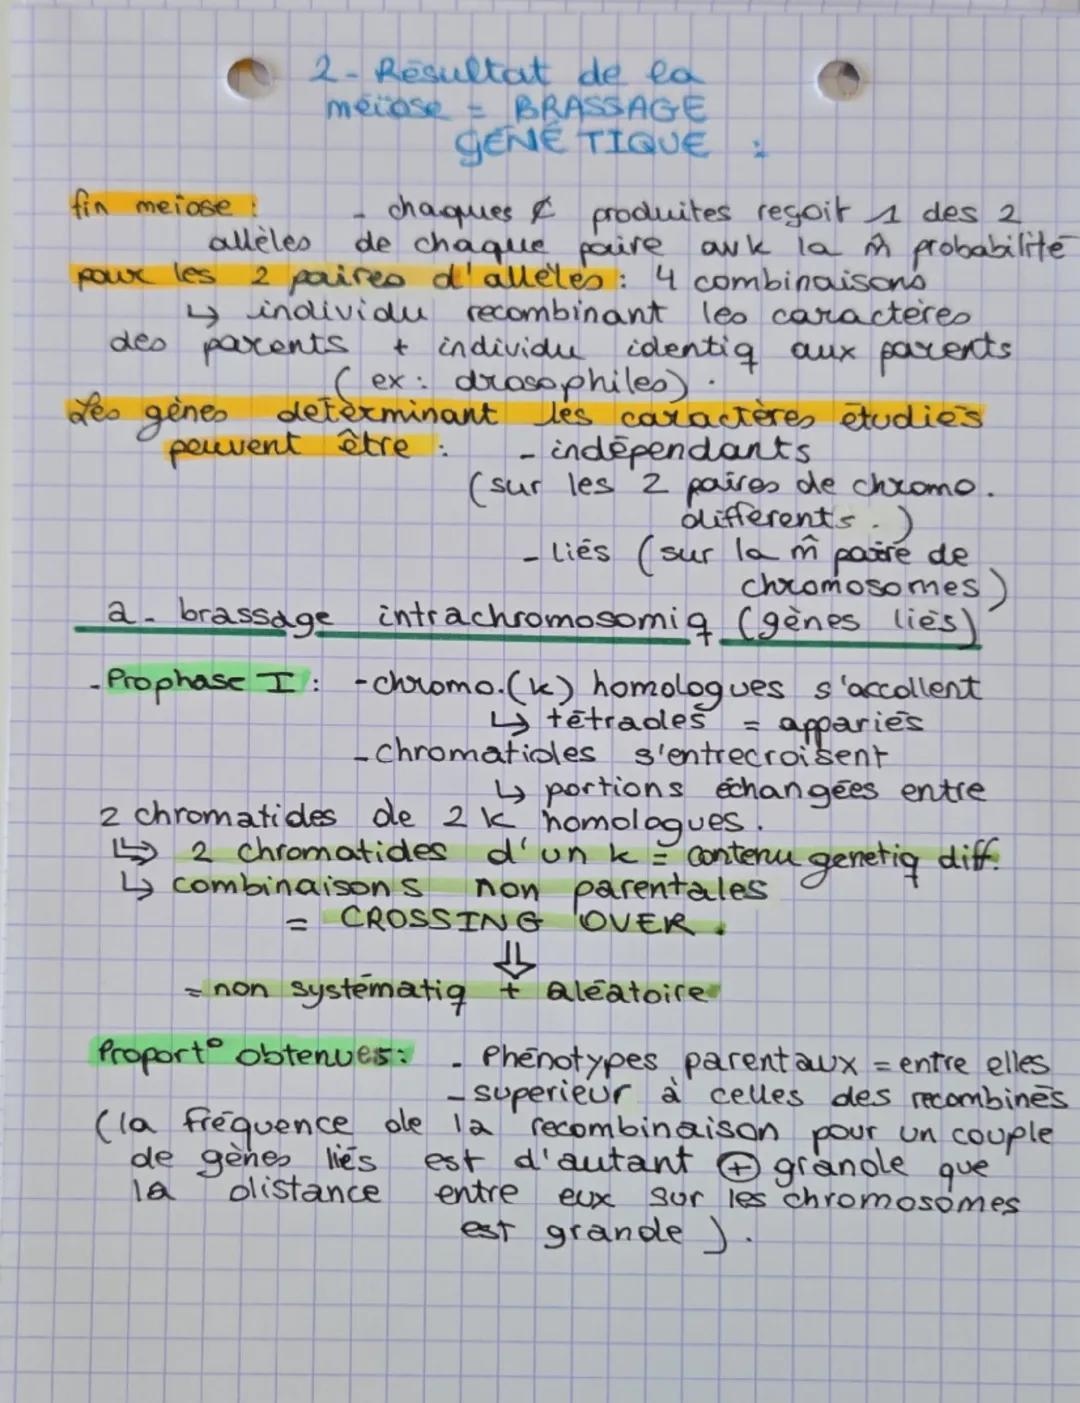 2- Résultat de la
méiose = BRASSAGE
GÉNÉTIQUE :
fin meïose : - chaques ₵ produites reçoit 1 des 2
allèles de chaque paire avk la m̂ probabilité
pour les 2 paires d'allèles : 4 combinaisons
↳ individu recombinant les caractères
des parents + individu identiq aux parents
( ex : drosophiles) .
Les gènes determinant les caractères étudiés
peuvent être : - indépendants
(sur les 2 paires de chromo.
différents . )
- liés (sur la m̂ paire de
chromosomes )
a - brassage intrachromosomiq (gènes liés)
- Prophase I : - chromo.(k) homologues s'accollent
↳ tétrades = appariés
- chromatides s'entrecroisent
↳ portions échangées entre
2 chromatides de 2 k homologues .
↳ 2 chromatides d'un k = contenu genetiq diff.
↳ combinaisons non parentales
= CROSSING OVER .
⇓
= non systématiq + aléatoire
Proport° obtenues : - Phénotypes parentaux = entre elles
- superieur à celles des recombinés
(la fréquence de la recombinaison pour un couple
de gènes liés est d'autant ⊕ grande que
la distance entre eux sur les chromosomes
est grande ) .